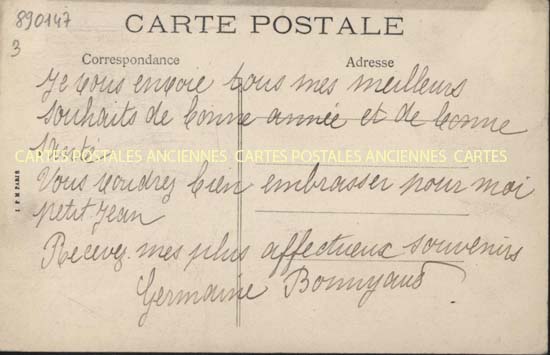 890147
3
CARTE POSTALE
Correspondance
Adresse
Je vous envoie tous mes meilleurs
souhaits de bonne année et de bonne
santé.
CARTES POSTALES ANCIENNES CARTES POSTALES ANCIENNES CARTES
Vous voudrez bien embrasser pour moi
petit Jean
Recevez mes plus affectueux souvenirs
Germaine
I P M PARIS